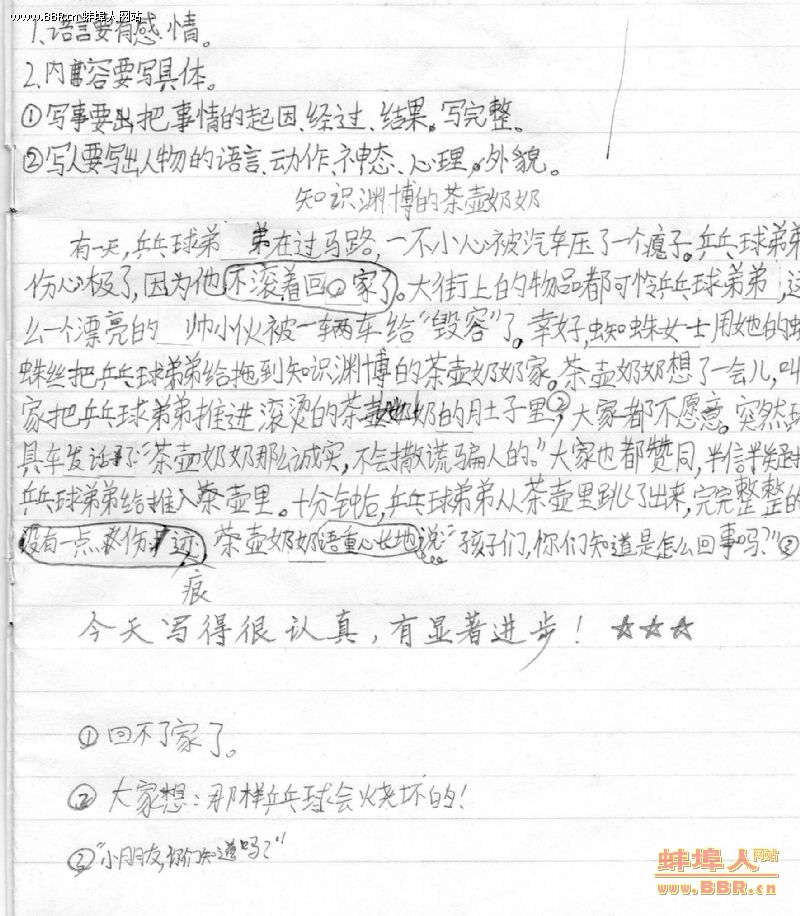 www.BBR.cn 蚌埠人网站
1、语言要有感情。
2、内容要写具体。
①写事要把事情的起因、经过、结果。写完整。
②写人要写出人物的语言、动作、神态、心理。外貌。
知识渊博的茶壶奶奶
有一天,乒乓球弟 弟在过马路,一不小心被汽车压了一个瘪子。乒乓球弟弟
伤心极了,因为他不滚着回 家了。大街上的物品都可怜乒乓球弟弟,这
么一个漂亮的 帅小伙被一辆车给“毁容”了。幸好,蜘蛛女士用她的蜘
蛛丝把乒乓球弟弟给拖到知识渊博的茶壶奶奶家。茶壶奶奶想了一会儿,叫
家把乒乓球弟弟推进滚烫的茶壶奶奶的肚子里,②大家都不愿意。突然
具车发话了:“茶壶奶奶那么诚实,不会撒谎骗人的。”大家也都赞同,半信半疑
乒乓球弟弟给推入茶壶里。十分钟后,乒乓球弟弟从茶壶里跳了出来,完完整整的
没有一点 伤 过。茶壶奶奶语重心长地说:“孩子们,你们知道是怎么回事吗?”③
痕
今天写得很认真,有显著进步!☆☆☆
①回不了家了。
②大家想:那样乒乓球会烧坏的!
③“小朋友,你们知道吗?”
蚌埠人网站
www.BBR.cn